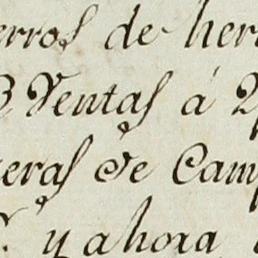 erros de herr
3 Ventas á 2
eras de Camp
y ahora